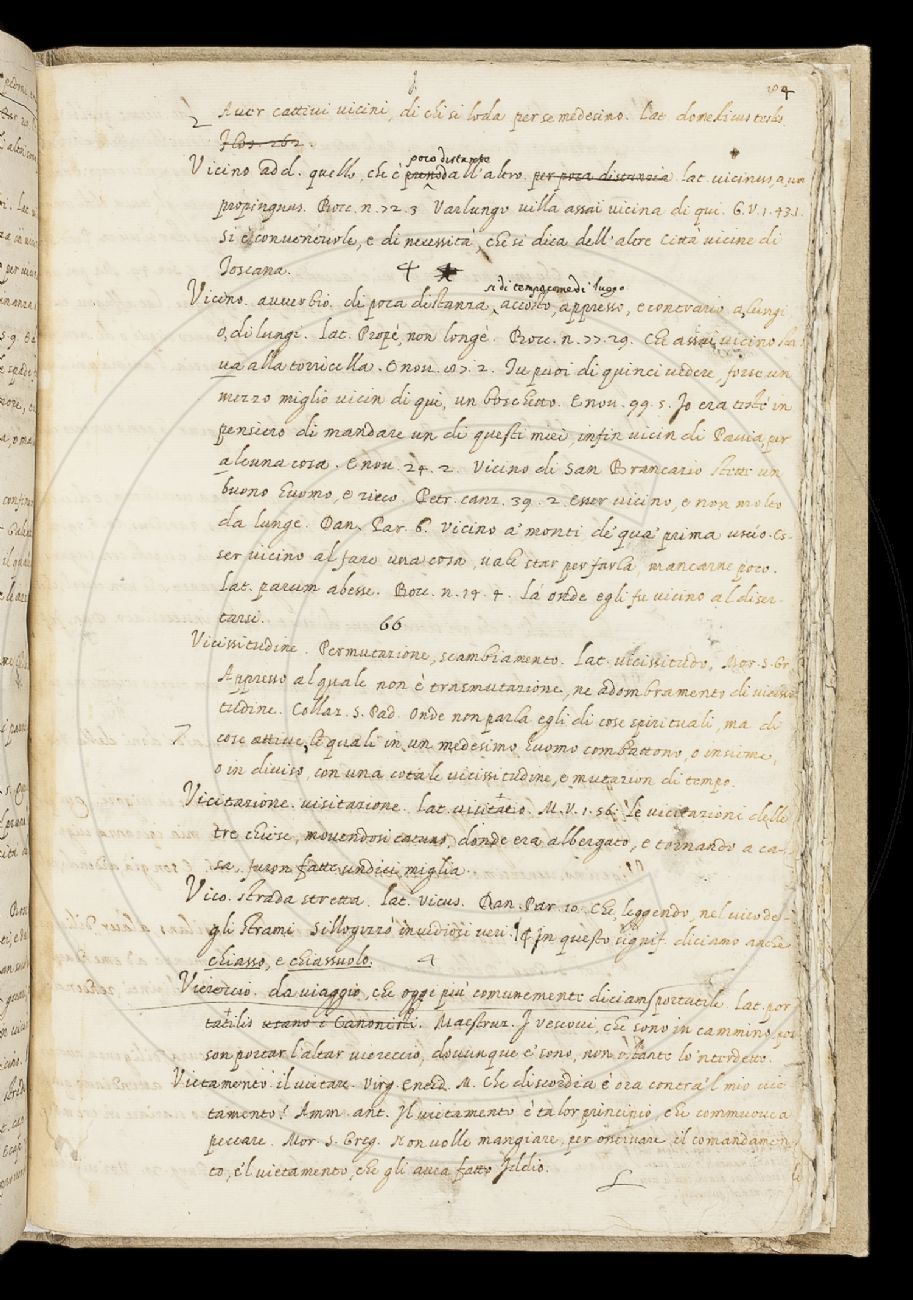 84
2 Aver cattivi uicini, di chi si loda per se medesimo. Lat. domesticus testis.
Flos 262.
poco distante
Vicino add. quello, che è dall'altro per poca distanzia lat. uicinus,a,um
propinquus. Bocc. n. 72. 3 Varlungo uilla assai uicina di qui. G.V. 1. 43. 1.
Si è conueneuole, e di necessità, che si dica dell'altre Città uicine di
Toscana. 4
si di tempo come di luogo
Vicino. auuerbio. di poca distanza, accosto, appresso, e contrario a lungi
o, di lungi. Lat. Propè, non longè. Bocc. n. 77. 29. Che assai uicino sta
ua alla torricella. E nou. 87. 2. Tu puoi di quinci uedere, forse un
mezzo miglio uicin di qui, un boschetto. E nou. 99. 5. Io era testè in
pensiero di mandare un di questi miei infin uicin di Pauia, per
alcuna cosa. E nou. 24. 2. Vicino di San Brancazio stette un
buono huomo, e ricco. Petr. canz. 39. 2. esser uicino, e non molto
da lunge. Dan. Par. 6. Vicino a' monti de' qua' prima uscío. Es-
ser uicino al fare una cosa, uale star per farla, mancarne poco.
Lat. parum abesse. Bocc. n. 14. 4. Là onde egli fu uicino al diser-
tarsi. 66
Vicissitudine. Permutazione, scambiamento. Lat. uicissitudo, Mor. S. Gr.
Appresso al quale non è trasmutazione, ne adombramento di uicissi
tudine. Collaz. S. Pad. Onde non parla egli di cose spirituali, ma di
7 cose attiue, le quali in un medesimo huomo combattono, o insieme,
o in diuiso, con una cotale uicissitudine, e mutazion di tempo.
Vicitazione. uisitazione. Lat. uisitatio. M.V. 1. 56. le uicitazioni delle
tre chiese, mouendosi catuno, donde era albergato, e tornando a ca-
sa, furon fatte undici miglia.
Vico. strada stretta. Lat. uicus. Dan. Par. 10. Che, leggendo, nel uico de-
gli strami Sillogizzò inuidiosi ueri. 4 In questo signif. diciamo anche
chiasso, e chiassuolo. 4
Viereccio. da uiaggio, che oggi più comunemente diciam portatile. Lat. por
tatilis usano i Canonisti. Maestruz. I vescoui, che sono in cammino pos
son portar l'altar uiereccio, douunque e' sono, non ostante lo 'nterdetto.
Vietamento il uietare. Virg. Eneid. M. Che discordia è ora contra 'l mio uie
tamento? Amm. ant. Il uietamento è talor principio, che commuoue a
peccare. Mor. S. Greg. Non uolle mangiare, per osseruare il comandamen
to, e 'l uietamento, che gli auea fatto Iddio.